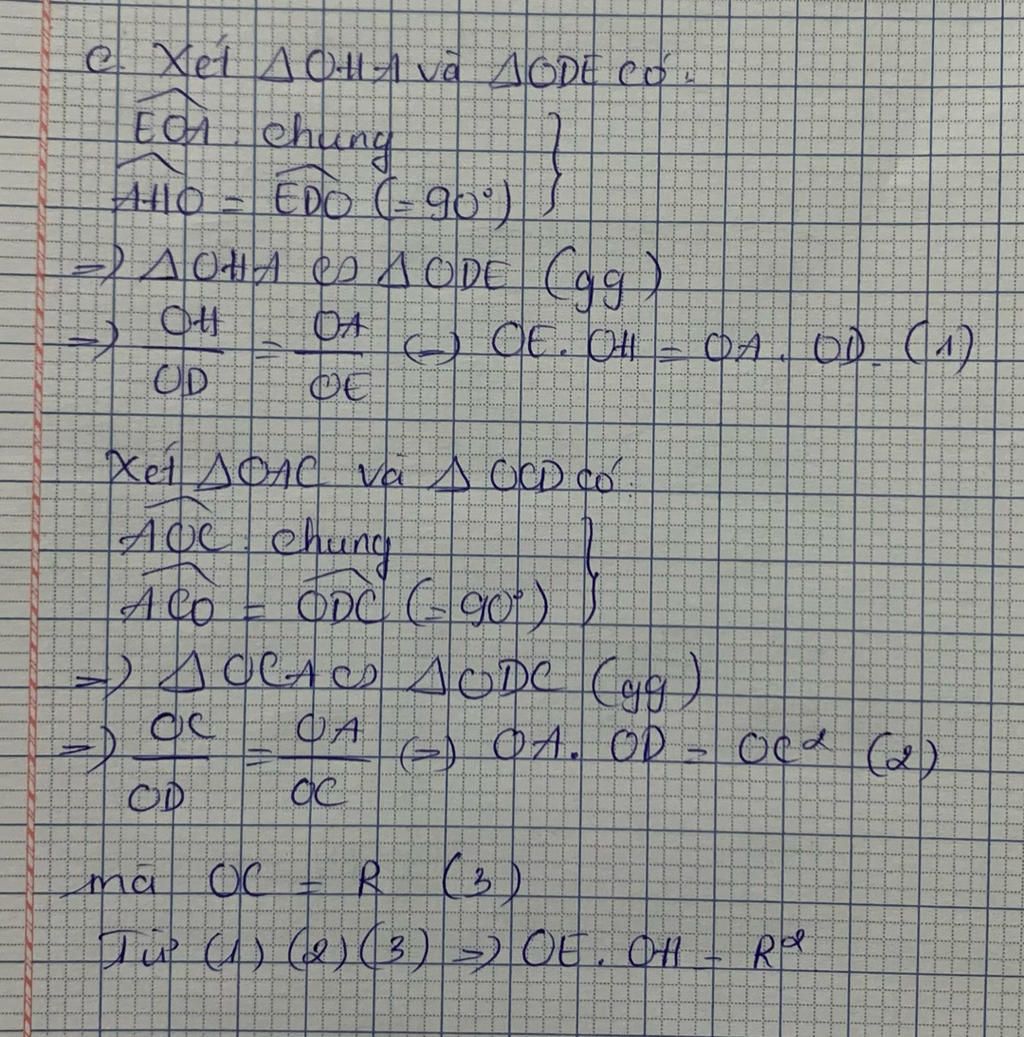 c. Xét ΔOHA và ΔODE có:
$\widehat{EOA}$ chung
$\widehat{AHO}$ = $\widehat{EDO}$ (=90°) }
=> ΔOHA ∽ ΔODE (gg)
=> $\frac{OH}{OD}$ = $\frac{OA}{OE}$ (=) OE. OH = OA. OD. (1)
Xét ΔOAC và Δ OCD có:
$\widehat{AOC}$ chung
$\widehat{ACO}$ = $\widehat{ODC}$ (=90°) }
=> ΔOCA ∽ ΔODC (gg)
=> $\frac{OC}{OD}$ = $\frac{OA}{OC}$ (=) OA. OD = OC² (2)
mà OC = R (3)
Từ (1) (2) (3) => OE. OH = R²